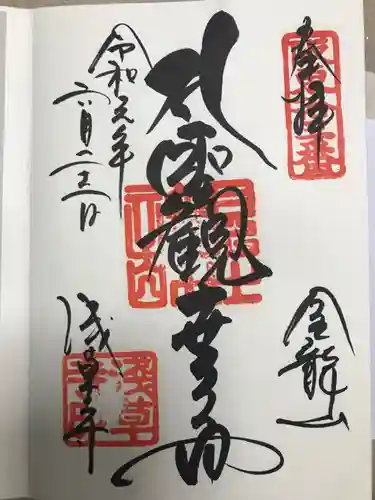 奉拝
金龍山
聖觀世音
令和元年
六月二十二日
浅草寺